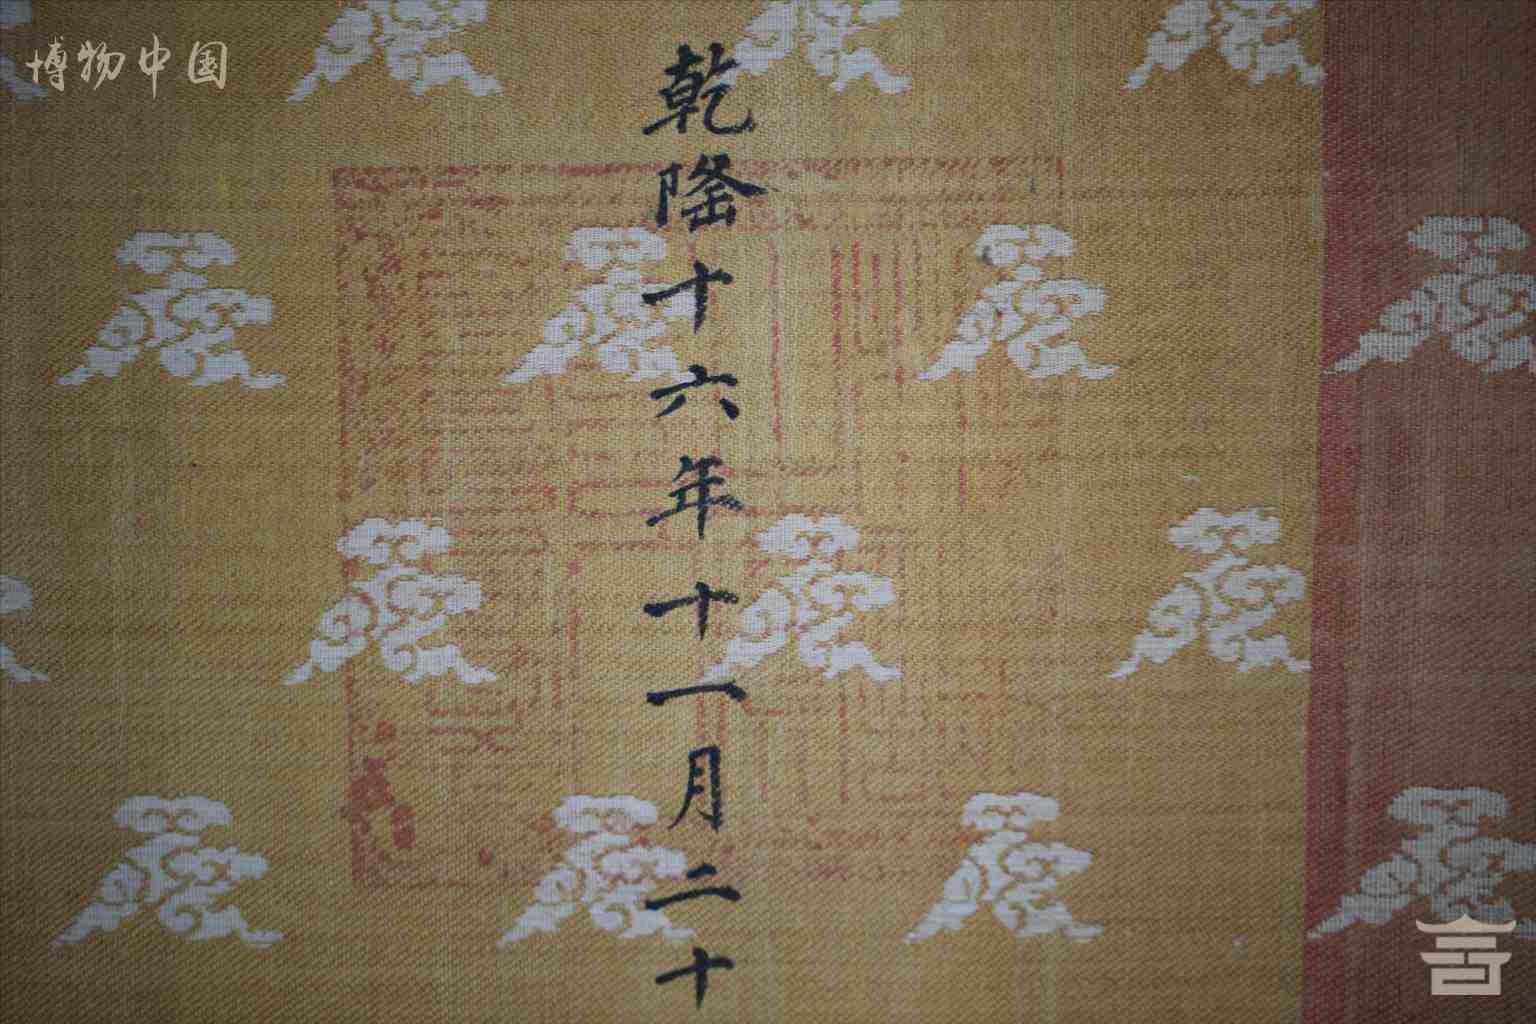 博物中国
乾隆十六年十一月二十